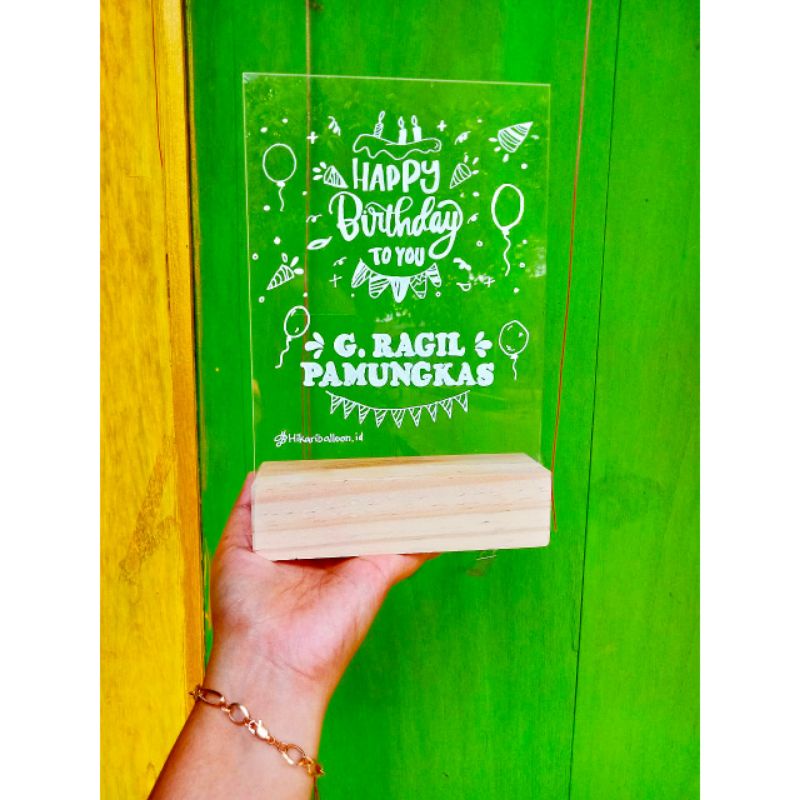 HAPPY
Birthday
TO YOU
G. RAGIL
PAMUNGKAS
#Hikariballoon.id